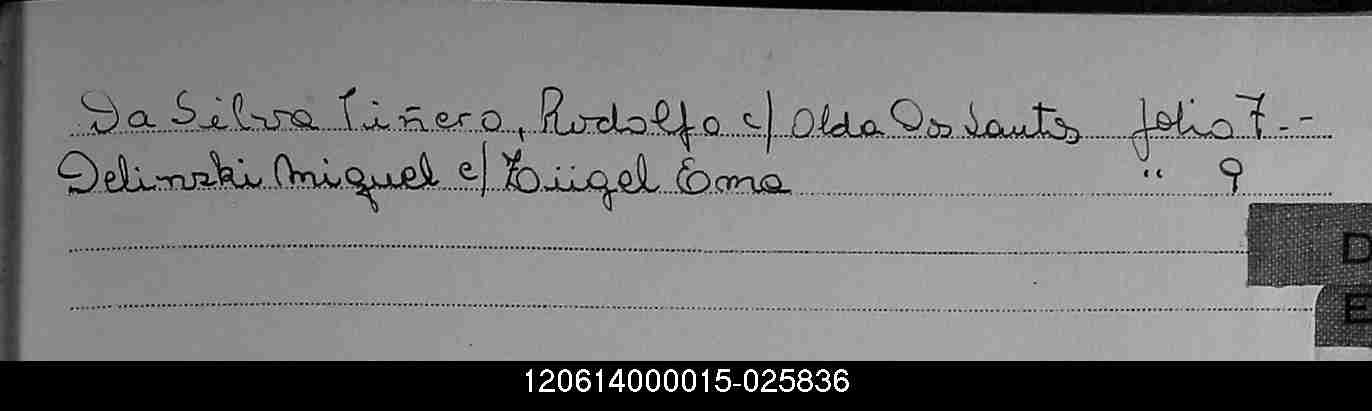 Da Silva Tiñero, Rodolfo c/ Olda Dos Santos folio 7.--
Delinski Miguel c/ Zügel Ema " 9
D
E
120614000015-025836